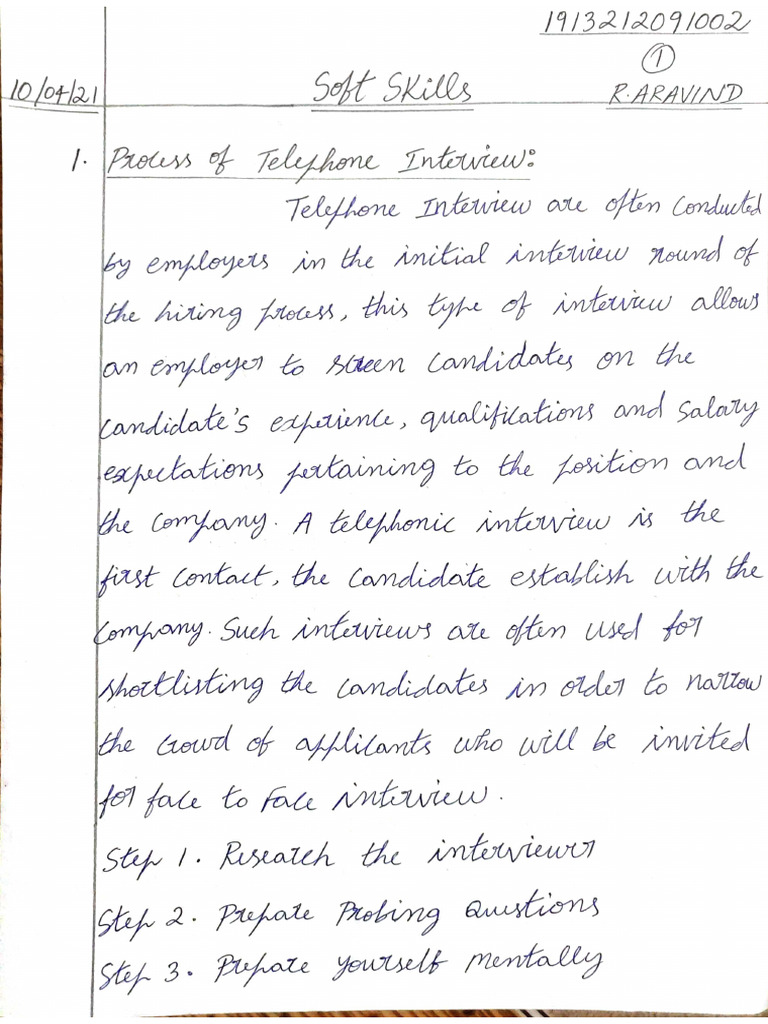 1913212091002
1
10/04/21 Soft Skills R.ARAVIND
1. Process of Telephone Interview:
Telephone Interview are often conducted
by employers in the initial interview round of
the hiring process, this type of interview allows
an employer to screen candidates on the
candidate's experience, qualifications and salary
expectations pertaining to the position and
the company. A telephonic interview is the
first contact, the candidate establish with the
company. Such interviews are often used for
shortlisting the candidates in order to narrow
the crowd of applicants who will be invited
for face to Face interview.
Step 1. Research the interviewer
Step 2. Prepare Probing Questions
Step 3. Prepare yourself mentally